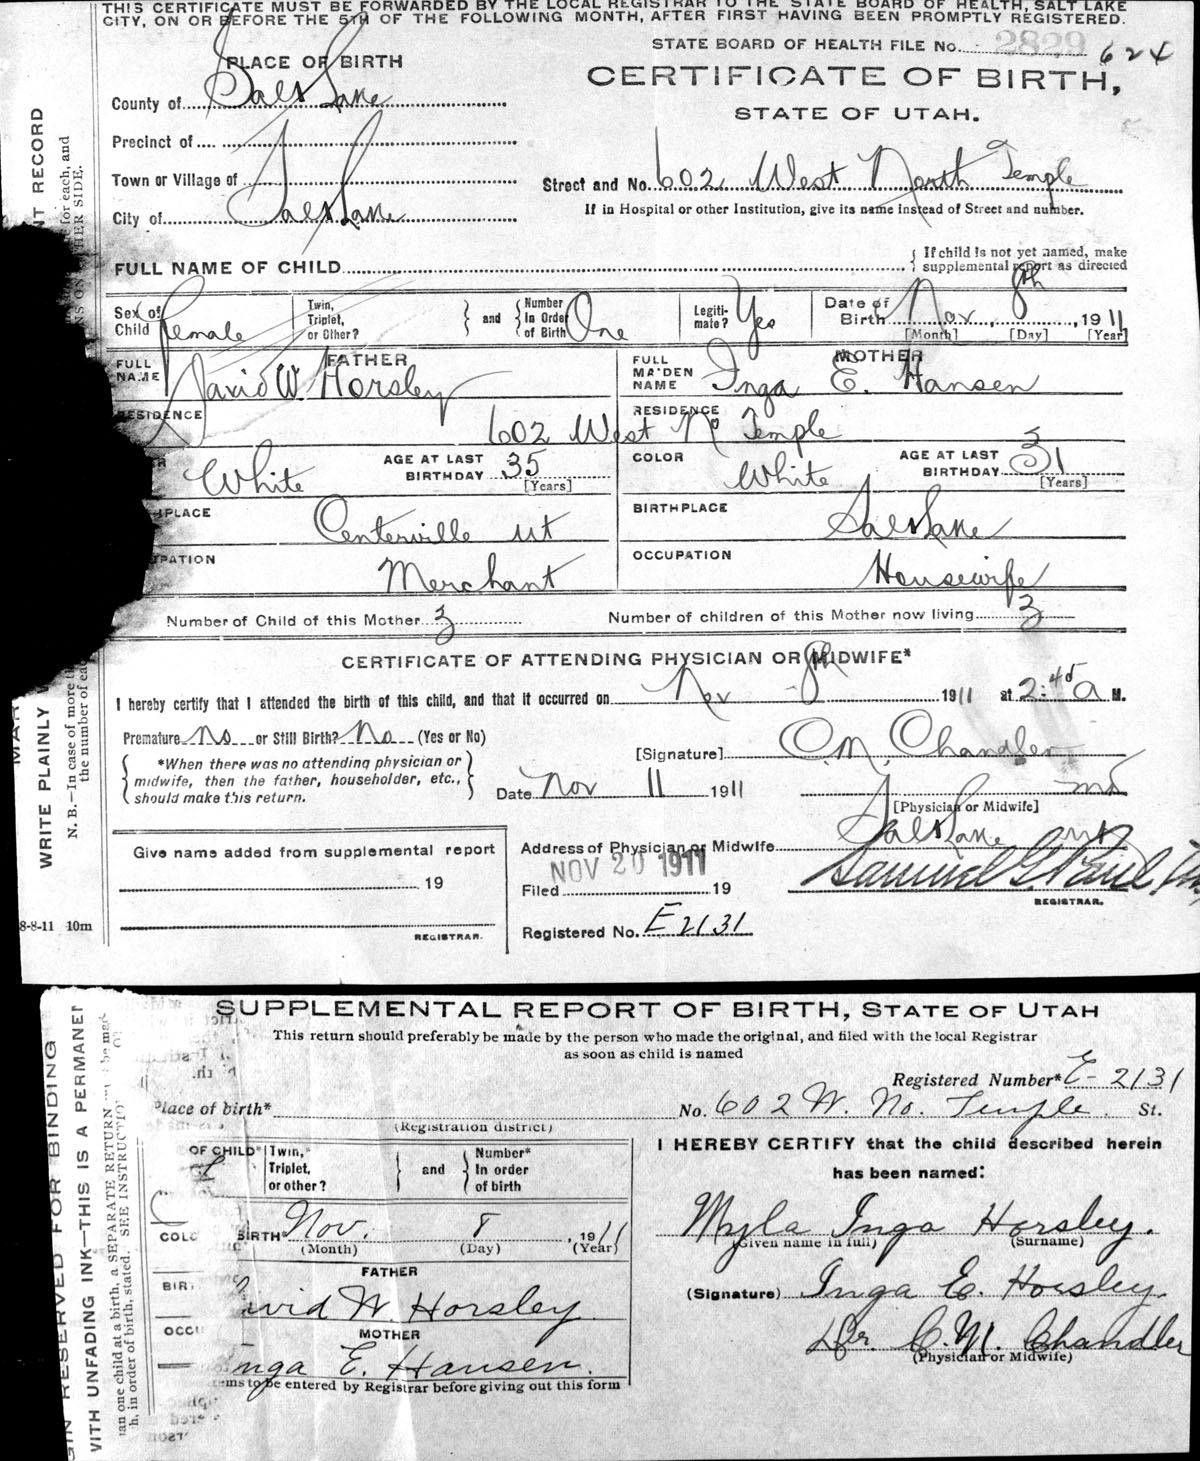 THIS CERTIFICATE MUST BE FORWARDED BY THE LOCAL REGISTRAR TO THE STATE BOARD OF HEALTH, SALT LAKE
CITY, ON OR BEFORE THE 5TH OF THE FOLLOWING MONTH, AFTER FIRST HAVING BEEN PROMPTLY REGISTERED.
STATE BOARD OF HEALTH FILE No. 2829 624
PLACE OF BIRTH
CERTIFICATE OF BIRTH,
STATE OF UTAH.
County of Salt Lake
Precinct of
Town or Village of
Street and No. 602 West North Temple
City of Salt Lake
If in Hospital or other Institution, give its name instead of Street and number.
FULL NAME OF CHILD
{ If child is not yet named, make
supplemental report as directed
Sex of Child Female
Twin, Triplet, or Other?
and
Number In Order of Birth One
Legiti-mate? Yes
Date of Birth Nov, 8th, 1911
[Month] [Day] [Year]
FATHER
FULL NAME David W. Horsley
MOTHER
FULL MAIDEN NAME Inga E. Hansen
RESIDENCE
RESIDENCE
602 West No Temple
White
AGE AT LAST BIRTHDAY 35
[Years]
COLOR White
AGE AT LAST BIRTHDAY 31
[Years]
HPLACE Centerville Ut
BIRTHPLACE Salt Lake
PATION Merchant
OCCUPATION Housewife
Number of Child of this Mother 3
Number of children of this Mother now living 3
CERTIFICATE OF ATTENDING PHYSICIAN OR MIDWIFE*
I hereby certify that I attended the birth of this child, and that it occurred on Nov 8th 1911 at 2:45 a M.
Premature No or Still Birth? No (Yes or No)
[Signature] C. M. Chandler
{ *When there was no attending physician or
midwife, then the father, householder, etc.,
should make this return. }
Date Nov 11 1911
MD
[Physician or Midwife]
Give name added from supplemental report
Address of Physician or Midwife Salt Lake Ut
19
NOV 20 1911
Filed 19
Samuel G. Paul
REGISTRAR.
REGISTRAR.
Registered No. E2131
8-8-11 10m
NT RECORD
for each, and
WRITE PLAINLY
N. B.—In case of more th
the number of eac
SUPPLEMENTAL REPORT OF BIRTH, STATE OF UTAH
This return should preferably be made by the person who made the original, and filed with the local Registrar
as soon as child is named
Registered Number* E-2131
Place of birth*
(Registration district)
No. 602 W. No. Temple St.
OF CHILD*
Twin,* Triplet, or other?
and
Number* In order of birth
I HEREBY CERTIFY that the child described herein
has been named:
COLO
BIRTH Nov. 8, 1911
(Month) (Day) (Year)
Myla Inga Horsley.
(Given name in full) (Surname)
BIRT
FATHER
avid W. Horsley
(Signature) Inga E. Horsley
OCCU
MOTHER
nga E. Hansen.
Dr. C. M. Chandler
(Physician or Midwife)
ems to be entered by Registrar before giving out this form
GIN RESERVED FOR BINDING
VITH UNFADING INK—THIS IS A PERMANEN
an one child at a birth, a SEPARATE RETURN must be mad
h, in order of birth, stated. SEE INSTRUCTIO